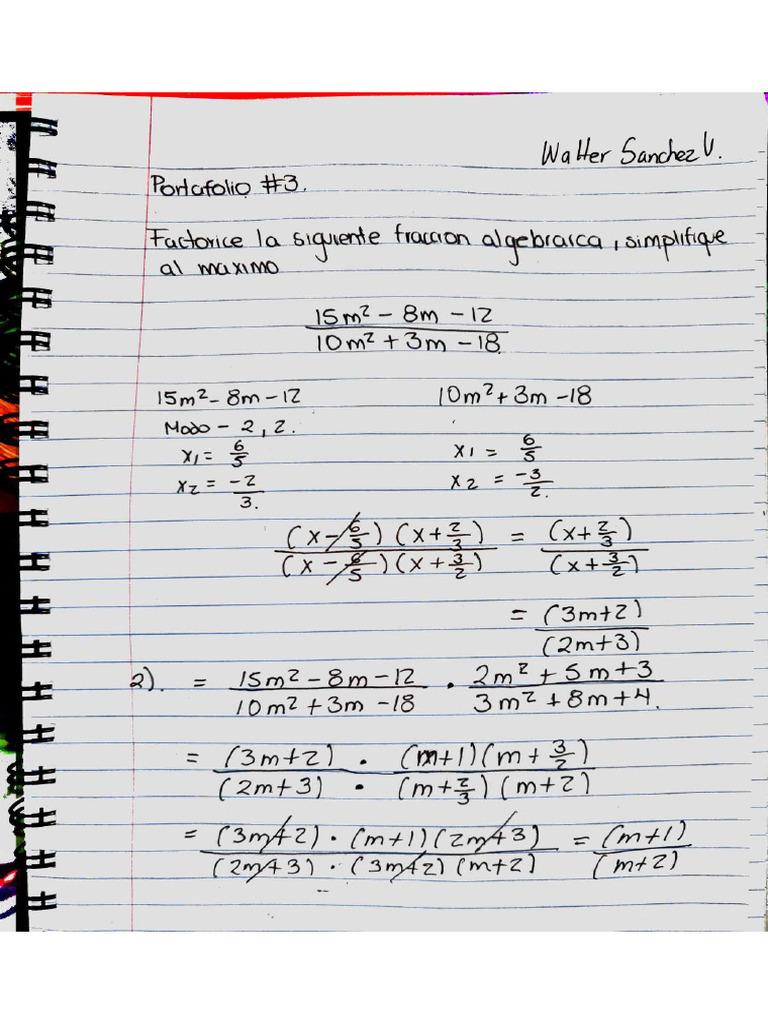 Walter Sanchez V.
Portafolio #3.
Factorice la siguiente fraccion algebraica, simplifique
al maximo
15m² - 8m - 12
10m² + 3m - 18
15m² - 8m - 12 10m² + 3m - 18
Modo - 2, 2.
x₁ = 6/5 x₁ = 6/5
x₂ = -2/3. x₂ = -3/2.
(x - 6/5) (x + 2/3) = (x + 2/3)
(x - 6/5) (x + 3/2) (x + 3/2)
= (3m+2)
(2m+3)
2). = 15m² - 8m - 12 · 2m² + 5m + 3
10m² + 3m - 18 3m² + 8m + 4.
= (3m+2) · (m+1) (m + 3/2)
(2m+3) · (m + 2/3) (m+2)
= (3m+2) · (m+1) (2m+3) = (m+1)
(2m+3) · (3m+2) (m+2) (m+2)